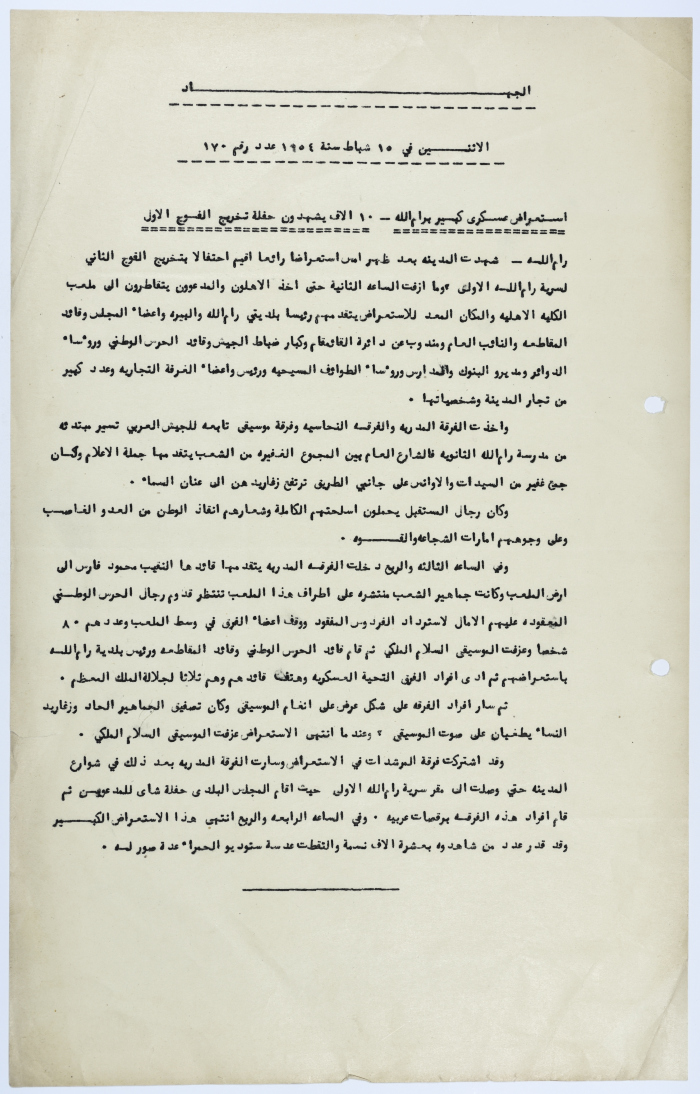 الجهـــــــــــــــــــاد
الاثنـــــين في ١٥ شباط سنة ١٩٥٤ عدد رقم ١٧٠
استعراض عسكرى كبير برام الله ــ ١٠ الاف يشهدون حفلة تخريج الفوج الاول
رام اللـه ــ شهدت المدينه بعد ظهر امس استعراضا رائعا اقيم احتفالا بتخريج الفوج الثاني
لسرية رام اللـه الاولى ، وما ازفت الساعه الثانية حتى اخذ الاهلون والمدعوون يتقاطرون الى ملعب
الكليه الاهليه والمكان المعد للاستعراض يتقدمهم رئيسا بلديتي رام الله والبيره واعضاء المجلس وقائد
المقاطعه والنائب العام ومندوب عن دائرة القائمقام وكبار ضباط الجيش وقائد الحرس الوطني وروءساء
الدوائر ومديرو البنوك والمدارس وروءساء الطوائف المسيحيه ورئيس واعضاء الغرفة التجاريه وعدد كبير
من تجار المدينة وشخصياتها .
واخذت الفرقة المدربه والفرقـه النحاسيه وفرقة موسيقى تابعه للجيش العربي تسير مبتدئه
من مدرسة رام الله الثانويه فالشارع العام بين المجموع الغفيره من الشعب يتقدمها حملة الاعلام وكـان
جمع غفير من السيدات والاوانس على جانبي الطريق ترتفع زغاريدهن الى عنان السماء .
وكان رجال المستقبل يحملون اسلحتهم الكاملة وشعارهم انقاذ الوطن من العدو الغاصـب
وعلى وجوههم امارات الشجاعه والقــــوه .
وفي الساعه الثالثه والربع دخلت الفرقـه المدربه يتقدمها قائدها النقيب محمود فارس الى
ارض الملعب وكانت جماهير الشعب منتشره على اطراف هذا الملعب تنتظر قدوم رجال الحرس الوطـني
المعقوده عليهم الامال لاسترداد الفردوس المفقود ووقف اعضاء الفرق في وسط الملعب وعددهم ٨٠
شخصا وعزفت الموسيقى السلام الملكي ثم قام قائد الحرس الوطني وقائد المقاطعه ورئيس بلدية رام اللـه
باستعراضهم ثم ادى افراد الفرق التحية العسكريه وهتف قائدهم وهم ثلاثا لجلالة الملك المعظم .
ثم سار افراد الفرقه على شكل عرض على انغام الموسيقى وكان تصفيق الجماهير الحاد وزغاريد
النساء يطغيان على صوت الموسيقى ، وعندما انتهى الاستعراض عزفت الموسيقى السلام الملكي .
وقد اشتركت فرقة المرشدات في الاستعراض وسارت الفرقة المدربه بعد ذلك في شوارع
المدينه حتي وصلت الى مقر سرية رام الله الاولى حيث اقام المجلس البلدى حفلة شاى للمدعويـن ثم
قام افراد هذه الفرقـه برقصات عربيه . وفي الساعه الرابعه والربع انتهى هذا الاستعراض الكبـــــير
وقد قدر عدد من شاهدوه بعشرة الاف نسمة والتقطت عدسة ستوديو الحمراء عدة صور لـه .